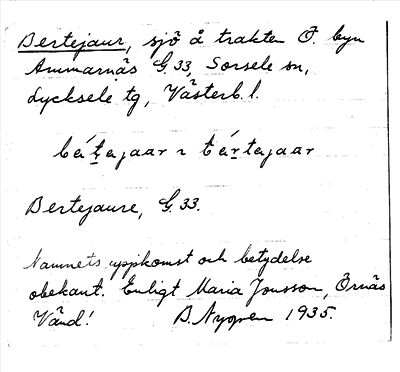 Bertejaur, sjö å trakten Ö. byn
Ammarnäs G.33, Sorsele sn,
Lycksele tg, Västerb. l.
bértajaar ~ bértajaar
Bertejaure, G.33.
Namnets uppkomst och betydelse
obekant. Enligt Maria Jonsson, Örnäs
Vänd! B. Nygren 1935.